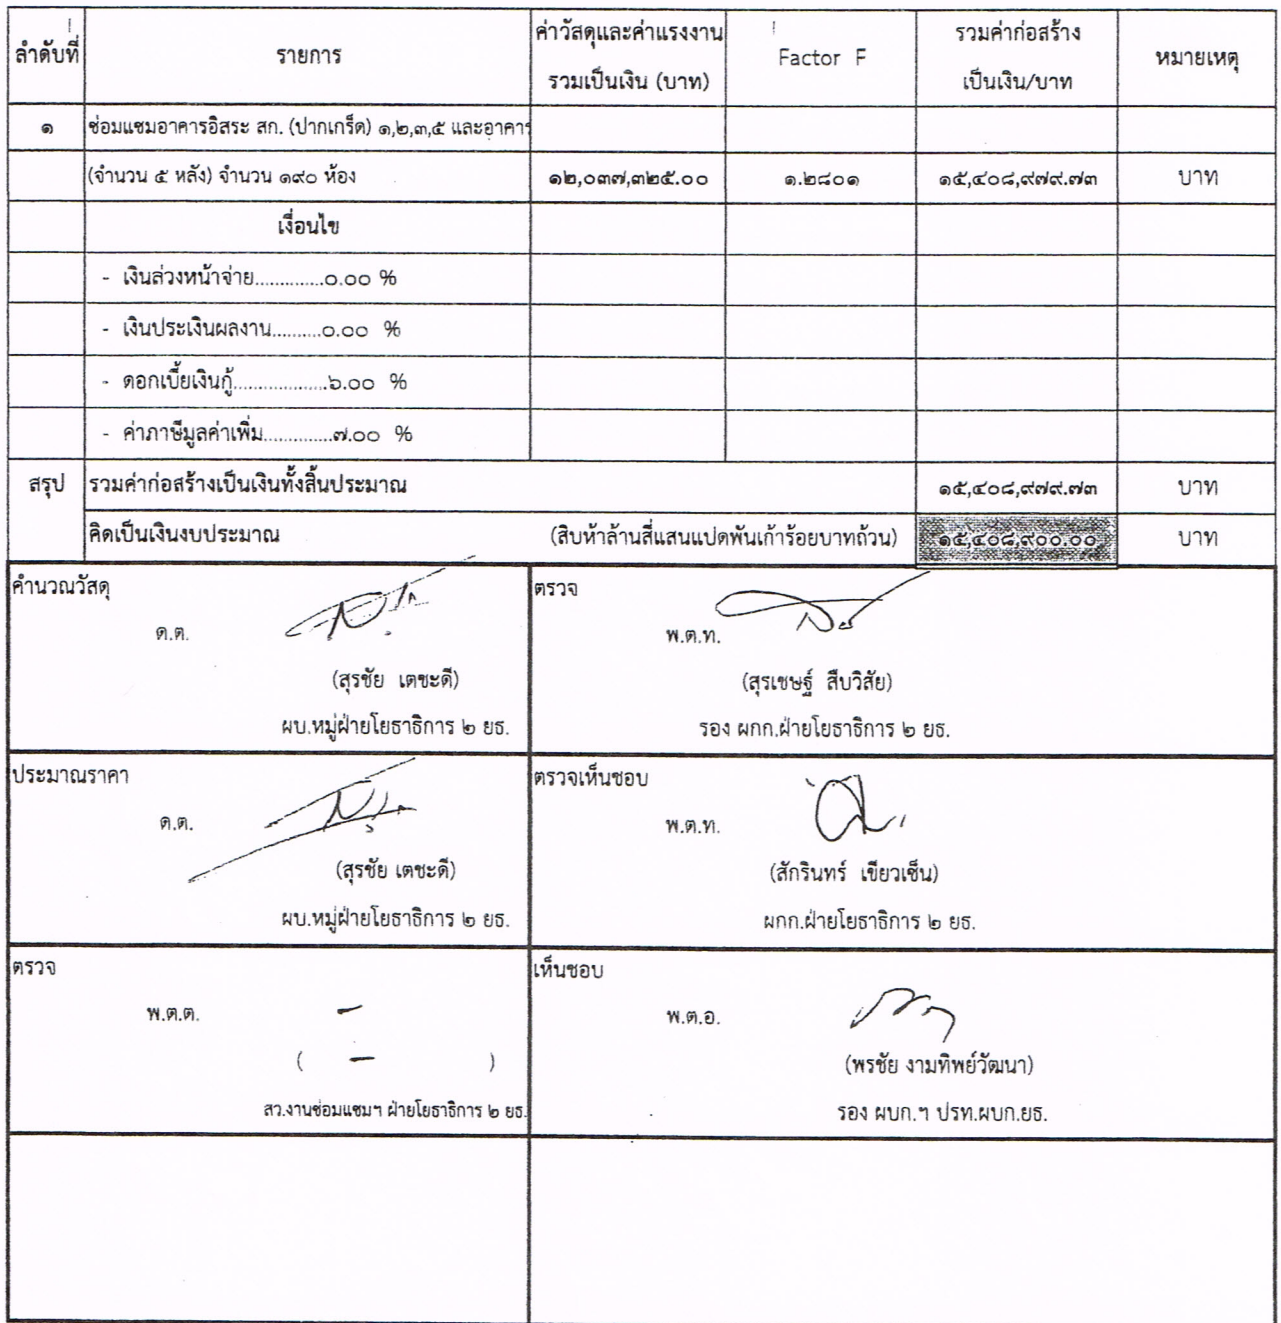 ลำดับที่ รายการ ค่าวัสดุและค่าแรงงาน รวมเป็นเงิน (บาท) Factor F รวมค่าก่อสร้าง เป็นเงิน/บาท หมายเหตุ
๑ ซ่อมแซมอาคารอิสระ สก. (ปากเกร็ด) ๑,๒,๓,๕ และอาคาร
(จำนวน ๕ หลัง) จำนวน ๑๙๐ ห้อง ๑๒,๐๓๗,๓๒๕.๐๐ ๑.๒๘๐๑ ๑๕,๔๐๘,๙๗๙.๗๓ บาท
เงื่อนไข
- เงินล่วงหน้าจ่าย.............๐.๐๐ %
- เงินประเงินผลงาน..........๐.๐๐ %
- ดอกเบี้ยเงินกู้..................๖.๐๐ %
- ค่าภาษีมูลค่าเพิ่ม.............๗.๐๐ %
สรุป รวมค่าก่อสร้างเป็นเงินทั้งสิ้นประมาณ ๑๕,๔๐๘,๙๗๙.๗๓ บาท
คิดเป็นเงินงบประมาณ (สิบห้าล้านสี่แสนแปดพันเก้าร้อยบาทถ้วน) ๑๕,๔๐๘,๙๐๐.๐๐ บาท
คำนวณวัสดุ
ด.ต.
(สุรชัย เตชะดี)
ผบ.หมู่ฝ่ายโยธาธิการ ๒ ยธ.
ตรวจ
พ.ต.ท.
(สุรเชษฐ์ สืบวิสัย)
รอง ผกก.ฝ่ายโยธาธิการ ๒ ยธ.
ประมาณราคา
ด.ต.
(สุรชัย เตชะดี)
ผบ.หมู่ฝ่ายโยธาธิการ ๒ ยธ.
ตรวจเห็นชอบ
พ.ต.ท.
(สักรินทร์ เขียวเซ็น)
ผกก.ฝ่ายโยธาธิการ ๒ ยธ.
ตรวจ
พ.ต.ต. -
( - )
สว.งานซ่อมแซมฯ ฝ่ายโยธาธิการ ๒ ยธ.
เห็นชอบ
พ.ต.อ.
(พรชัย งามทิพย์วัฒนา)
รอง ผบก.ฯ ปรท.ผบก.ยธ.